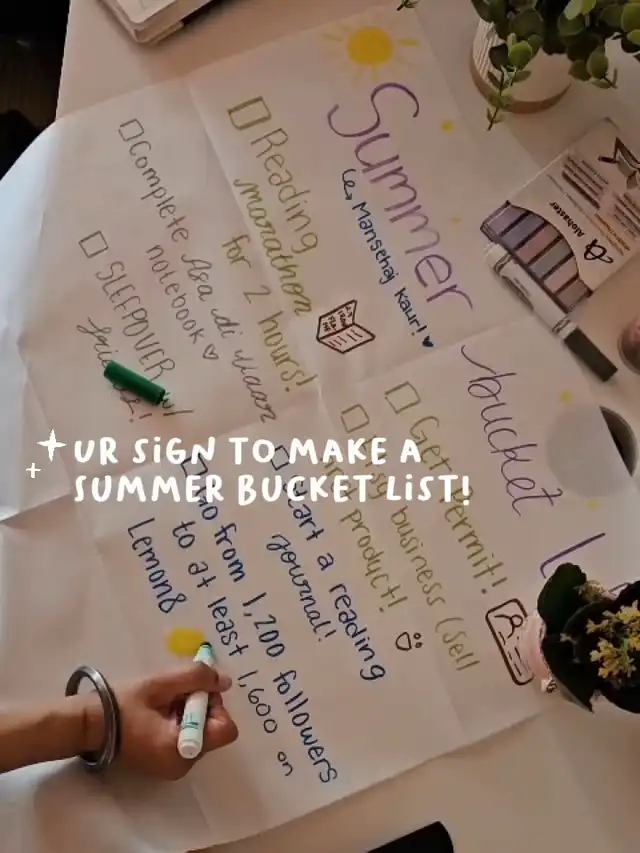 Summer
by Mansehaj Kaur!
bucket
☐ Reading
marathon
for 2 hours!
☐ Complete Asa di Vaar
notebook ♡
☐ SLEEPOVER
☐ Get permit!
business (sell
product!
☐ Start a reading
journal!
from 1,200 followers
to at least 1,600 on
Lemon8
UR SIGN TO MAKE A
SUMMER BUCKET LIST!
Ohuhu